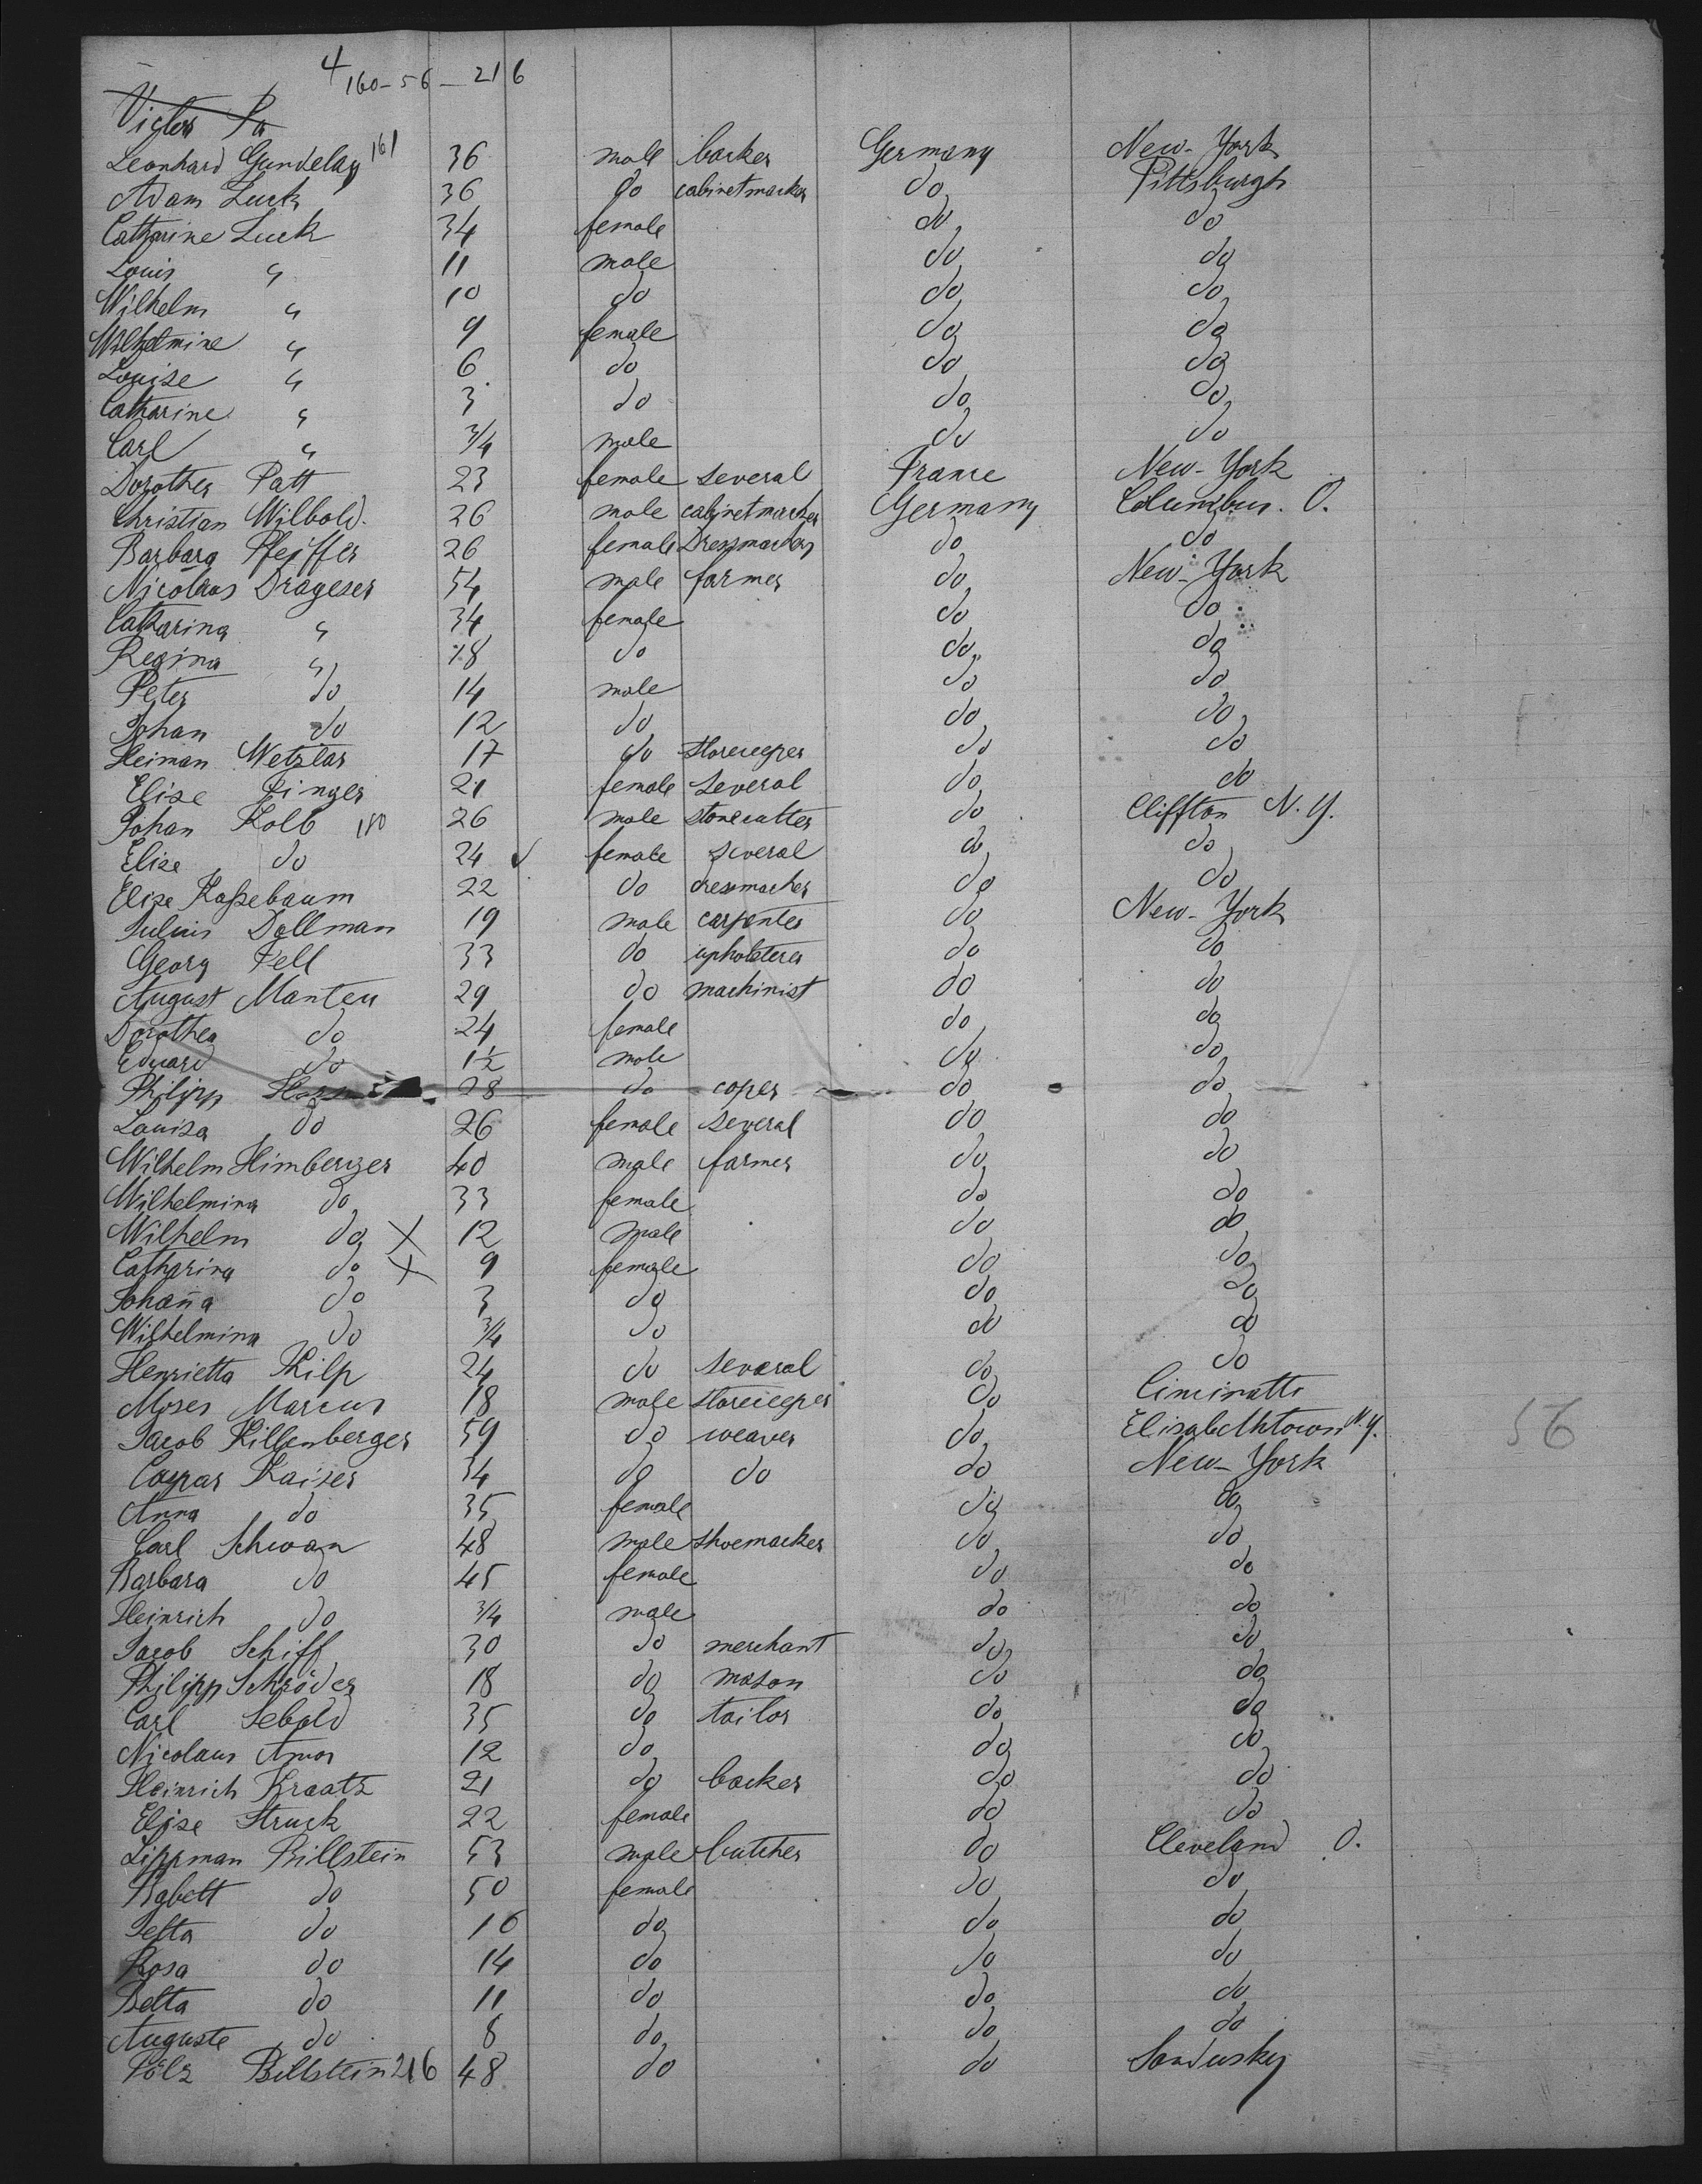 4 160-56-216
Victor Pa
Leonhard Gundelag 161 36 male backer Germany New-York
Adam Luck 36 do cabinetmacker do Pittsburgh
Catharine Luck 34 female do do
Louis " 11 male do do
Wilhelm " 10 do do do
Wilhelmine " 9 female do do
Louise " 6 do do do
Catharine " 3 do do do
Carl " 3/4 male do do
Dorothea Patt 23 female several France New-York
Christian Wilbold. 26 male cabinetmacker Germany Columbus. O.
Barbara Pfeiffer 26 female Dressmacker do do
Nicolaus Drageser 54 male farmer do New-York
Catharina " 34 female do do
Regina " 18 do do do
Peter do 14 male do do
Johan do 12 do do do
Heiman Wetzlar 17 do storeceeper do do
Elise Finger 21 female several do do
Johan Kolb 180 26 male stonecutter do Cliffton N.Y.
Elise do 24 female several do do
Elise Kaßebaum 22 do dressmacher do do
Julius Dollman 19 male carpenter do New-York
Georg Fell 33 do upholsterer do do
August Manteu 29 do machinist do do
Dorothea do 24 female do do
Eduard do 1½ male do do
Philipp 28 do coper do do
Louisa do 26 female several do do
Wilhelm Himberger 40 male farmer do do
Wilhelmina do 33 female do do
Wilhelm do X 12 male do do
Catharina do X 9 female do do
Johaña do 3 do do do
Wilhelmina do 3/4 do do do
Henrietta Kilp 24 do several do do
Moses Marcus 18 male storeceeper do Cincinatti
Jacob Killenberger 59 do weaver do Elisabethtown N.Y.
Caspar Kaiser 34 do do do New-York
Anna do 35 female do do
Carl Schwan 48 male shoemacker do do
Barbara do 45 female do do
Heinrich do 3/4 male do do
Jacob Schiff 30 do merchant do do
Philipp Schröder 18 do mason do do
Carl Sebold 35 do tailor do do
Nicolaus Amos 12 do do do
Heinrich Kraatz 21 do backer do do
Elise Struck 22 female do do
Lippman Billstein 53 male butcher do Cleveland O.
Babett do 50 female do do
Jetta do 16 do do do
Rosa do 14 do do do
Betta do 11 do do do
Auguste do 8 do do do
Billstein 216 48 do do Sandusky
56